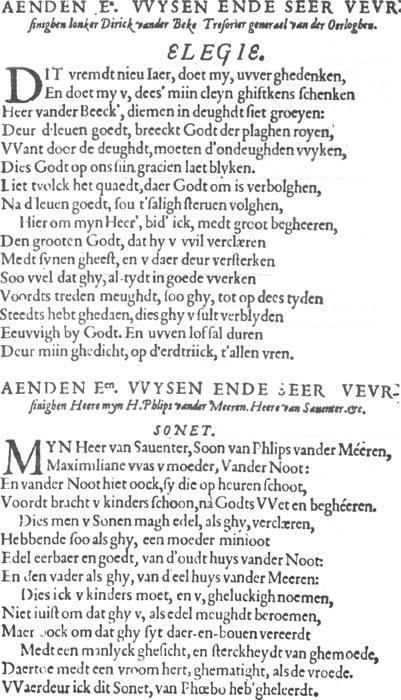 AENDEN Eᴺ. VVYSEN ENDE SEER VEVR-
sinighen Ionker Dirick vander Beke Tresorier generael van der Oorloghen.
ELEGIE.
DIT vremdt nieu Iaer, doet my, uvver ghedenken,
En doet my v, dees' miin cleyn ghiftkens schenken
Heer vander Beeck', diemen in deughdt siet groeyen:
Deur d'leuen goedt, breeckt Godt der plaghen royen,
VVant door de deughdt, moeten d'ondeughden vvyken,
Dies Godt op ons siin gracien laet blyken.
Liet tvolck het quaedt, daer Godt om is verbolghen,
Na d'leuen goedt, sou t'saligh steruen volghen,
Hier om myn Heer', bid' ick, medt groot begheeren,
Den grooten Godt, dat hy v vvil verclæren
Medt synen gheest, en v daer deur versterken
Soo vvel dat ghy, al-tydt in goede vverken
Voordts treden meughdt, soo ghy, tot op dees tyden
Steedts hebt ghedaen, dies ghy v sult verblyden
Eeuvvigh by Godt. En uvven lof sal duren
Deur miin ghedicht, op d'erdtriick, t'allen vren.
AENDEN Eᵉⁿ. VVYSEN ENDE SEER VEVR-
sinighen Heere myn H. Phlips vander Meeren. Heere van Sauenter. &c.
SONET.
MYN Heer van Sauenter, Soon van Phlips vander Méeren,
Maximiliane vvas v moeder, Vander Noot:
En vander Noot hiet oock, sy die op heuren schoot,
Voordt bracht v kinders schoon, nà Godts VVet en beghéeren.
Dies men v Sonen magh edel, als ghy, verclæren,
Hebbende soo als ghy, een moeder minioot
Edel eerbaer en goedt, van d'oudt huys vander Noot:
En den vader als ghy, van d'eel huys vander Meeren:
Dies ick v kinders moet, en v, gheluckigh noemen,
Niet iuist om dat ghy v, als edel meughdt beroemen,
Maer oock om dat ghy syt daer-en-bouen vereerdt
Medt een manlyck ghesicht, en sterckheydt van ghemoede,
Daertoe medt een vroom hert, ghematight, als de vroede.
VVaerdeur ick dit Sonet, van Phœbo heb' gheleerdt.